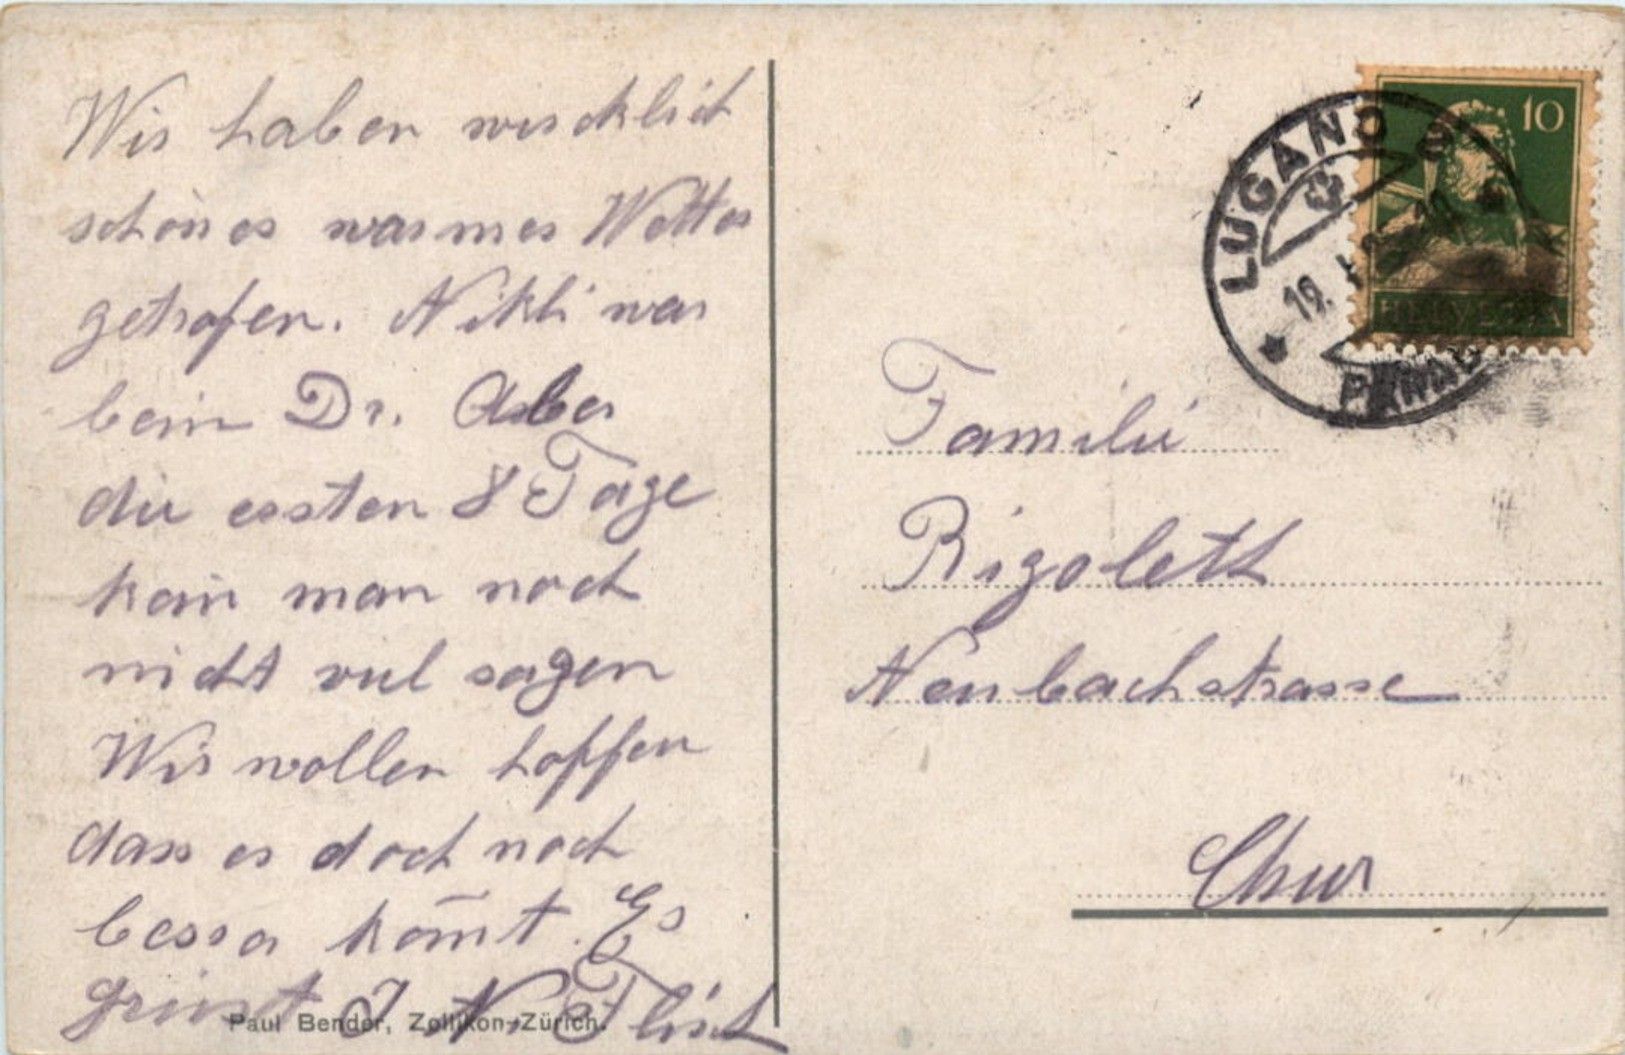 Wir haben wircklich
schönes warmes Wetter
getrofen. Nikli war
beim Dr.
die ersten 8 Tage
kan man noch
nicht viel sagen
Wir wollen hoffen
dass es doch noch
besser kom̄t. Es
grüsst J. N. Flisch
Paul Bender, Zollikon-Zürich.
LUGANO
10
HELVETIA
Familie
Rigolett
Neubachstrasse
Chur